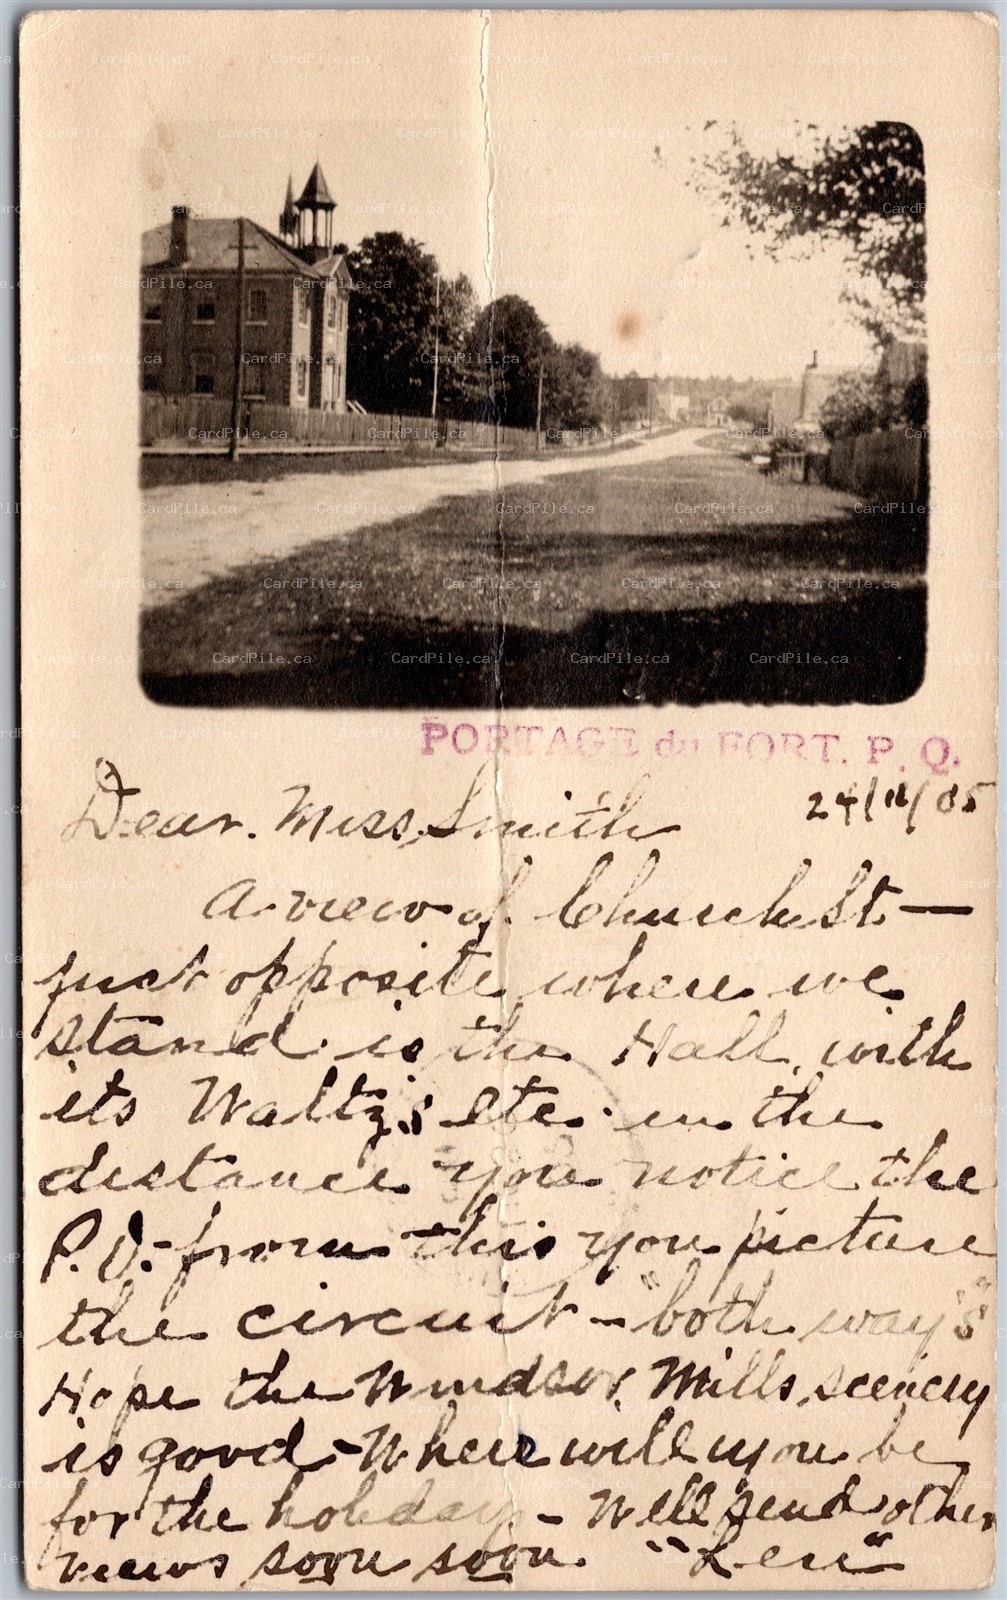 PORTAGE du FORT. P. Q.
24/12/05
Dear Miss Smith
A view of Church St —
just opposite where we
stand is the Hall, with
its Waltz's etc. in the
distance you notice the
P.O. - from this you picture
the circuit - "both ways"
Hope the Windsor Mills scenery
is good - Where will you be
for the holidays - Will send other
views soon soon. "Len"
CardPile.ca